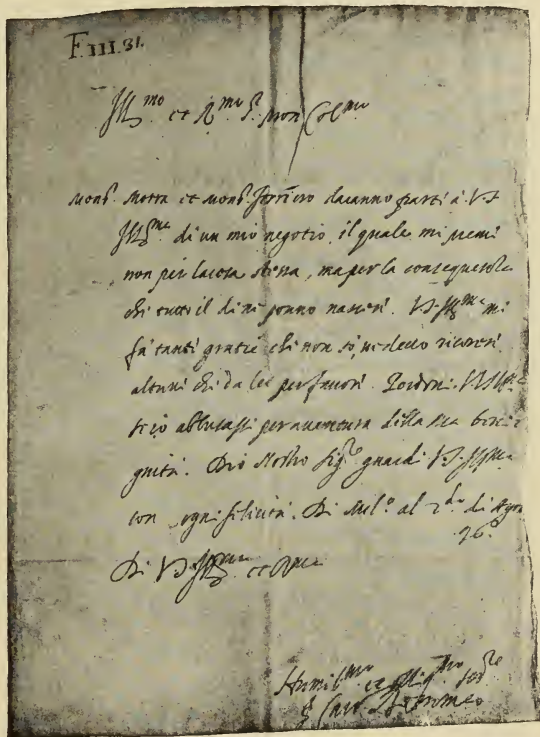 F. III. 31.
Ill.mo et R.mo S.r Mon Col.mo
Mons.r Motta et Mons.r daranno parte à V.S.
Ill.ma di un mio negotio, il quale mi preme
non per la cosa stessa, ma per la consequenza
che tutto il dì ne ponno nascere. V.S. Ill.ma mi
fà tante gratie che non sò, ne debbo ricorrere
altrui che da lei per favori. V.S. Ill.ma
se io abusassi per aventura della sua beni-
gnità. Dio Nostro Sig.re guardi V.S. Ill.ma
con ogni felicità. Di Mil.o al 2.do di Agos
96.
Di V.S. Ill.ma et R.ma
Humil.mo et ser.re
Borromeo